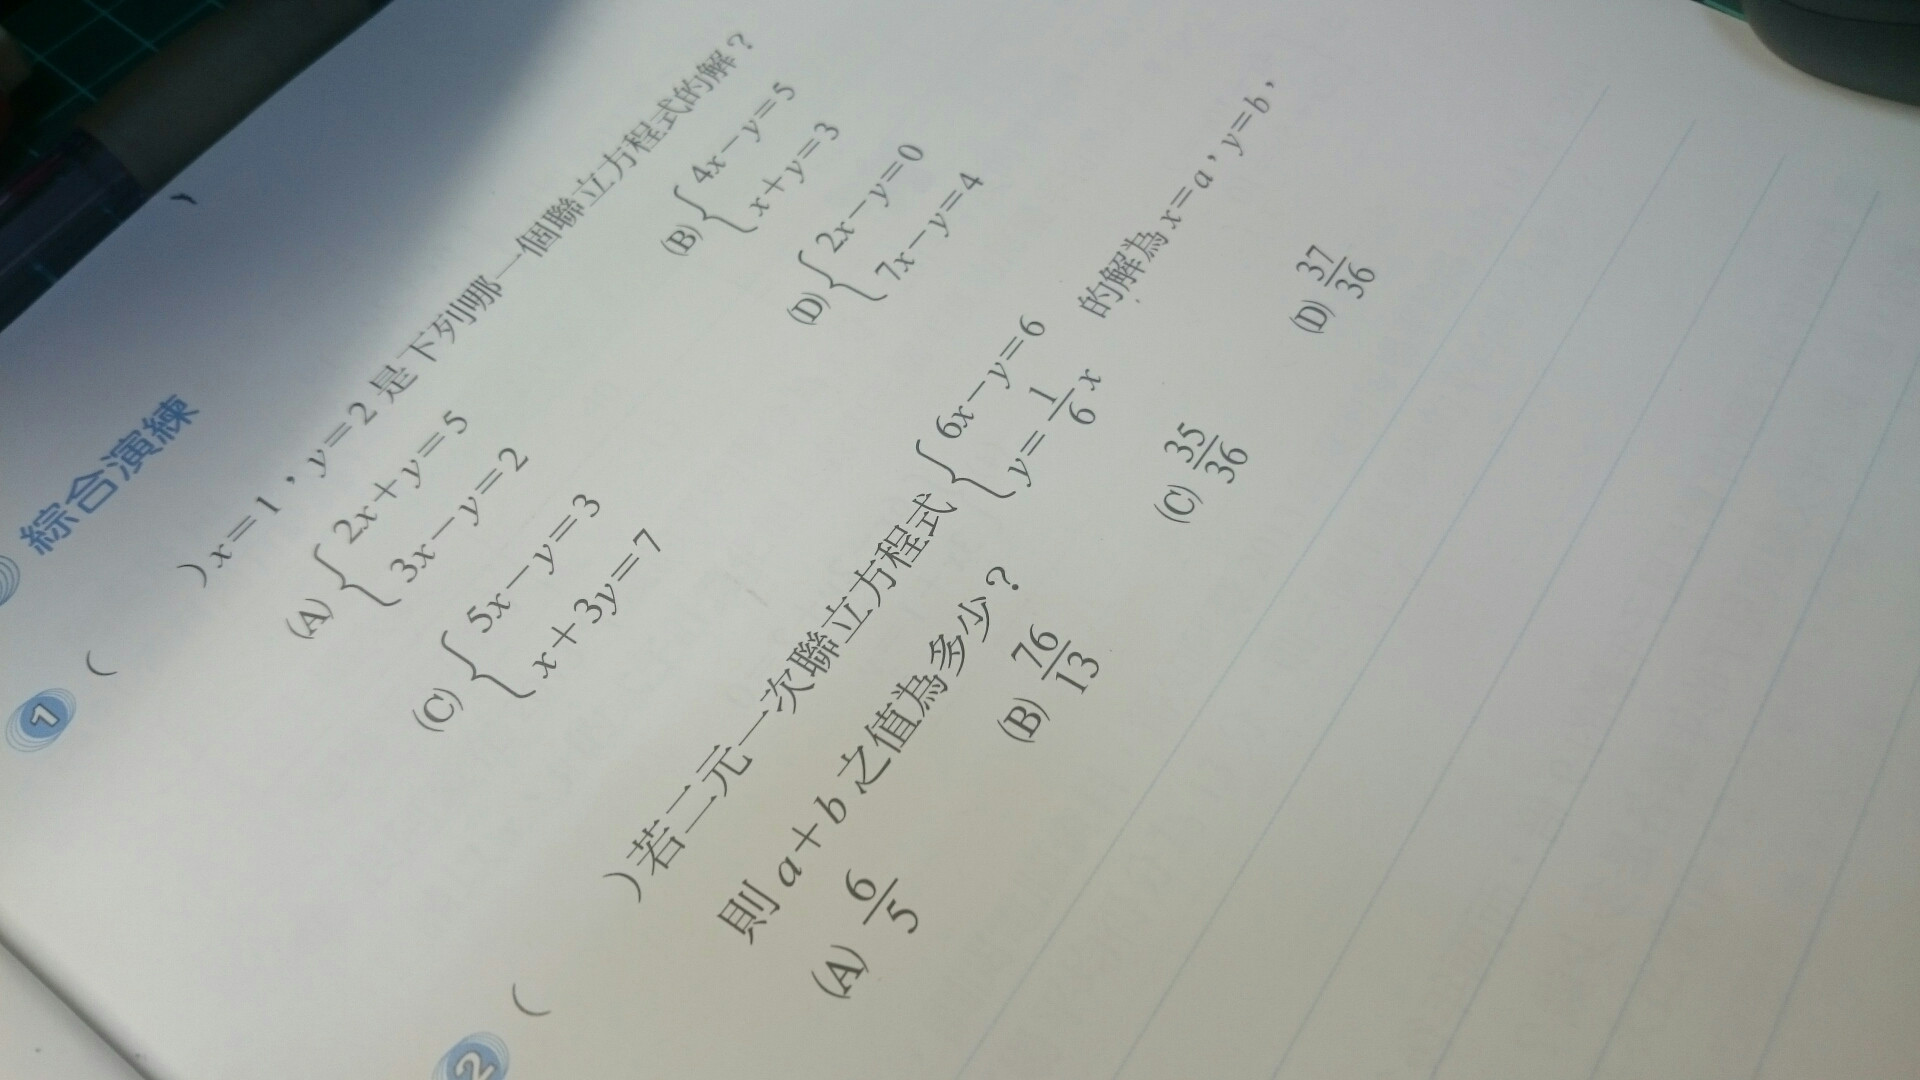 綜合演練
1 ( ) x=1，y=2 是下列哪一個聯立方程式的解？
(A) { 2x+y=5
3x−y=2
(B) { 4x−y=5
x+y=3
(C) { 5x−y=3
x+3y=7
(D) { 2x−y=0
7x−y=4
2 ( ) 若二元一次聯立方程式 { 6x−y=6
y=1/6 x
的解為 x=a，y=b，
則 a+b 之值為多少？
(A) 6/5 (B) 76/13 (C) 35/36 (D) 37/36